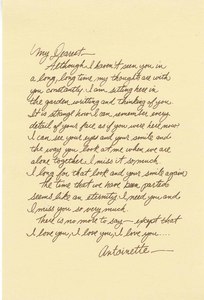 My Dearest —
Although I haven't seen you in
a long, long time my thoughts are with
you constantly. I am sitting here in
the garden writing and thinking of you.
It is strange how I can remember every
detail of your face as if you were here now.
I can see your eyes and your smile and
the way you look at me when we are
alone together. I miss it so much.
I long for that look and your smile again.
The time that we have been parted
seems like an eternity. I need you and
I miss you so very much.
There is no more to say — except that
I love you, I love you, I love you....
Antoinette —